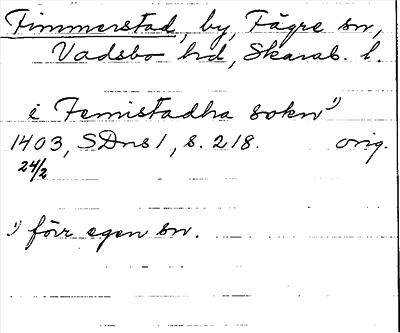 Fimmerstad, by, Fägre sn,
Vadsbo hd, Skarab. l.
i Femistadha sokn¹⁾
1403, SDns 1, s. 218. orig.
24/2
¹⁾ förr egen sn.